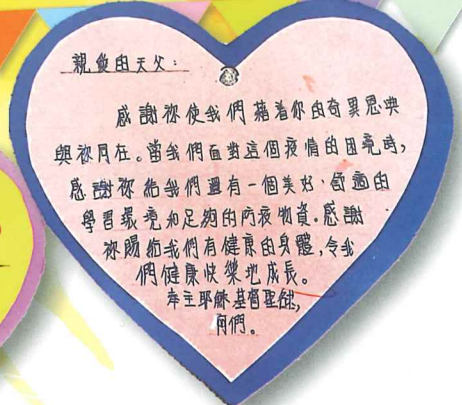 親愛的天父：
感謝祢使我們藉着你的奇異恩典
與祢同在。當我們面對這個疫情的困境時，
感謝祢給我們還有一個美好、舒適的
學習環境和足夠的防疫物資。感謝
祢賜給我們有健康的身體，令我
們健康快樂地成長。
奉主耶穌基督聖名，
阿們。